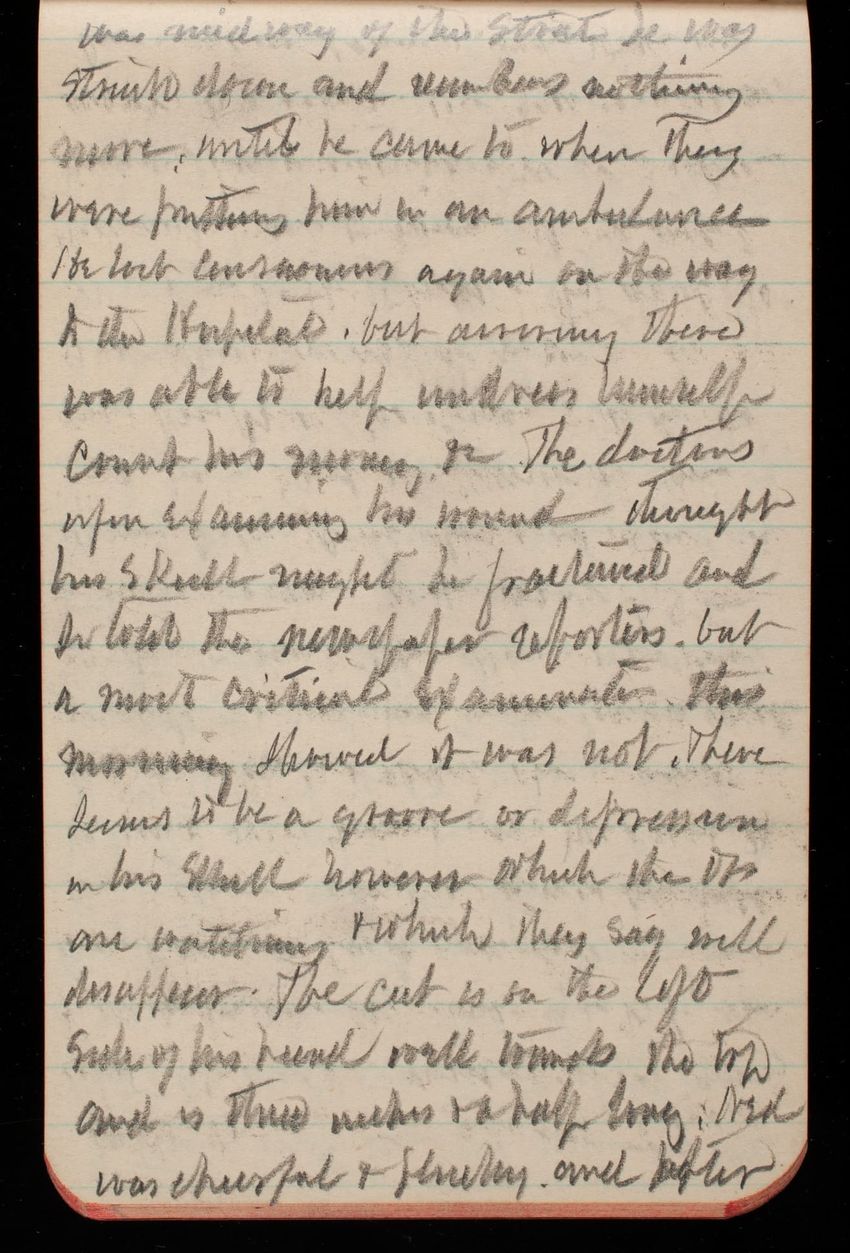 was midway of the Street he was
Struck down and remembers nothing
more, until he came to when they
were putting him in an ambulance
He lost consciousness again on the way
to the Hospital, but arriving there
was able to help undress himself
Count his money, &c The doctors
upon Examining his wound thought
his Skull might be fractured and
so told the newspaper reporters. but
a most critical Examination this
morning showed it was not. There
Seems to be a groove or depression
in his Skull however which the Drs
are watching & which they say will
disappear. The cut is on the left
Side of his head well towards the top
and is three inches & a half long. Ned
was cheerful & plucky. and after